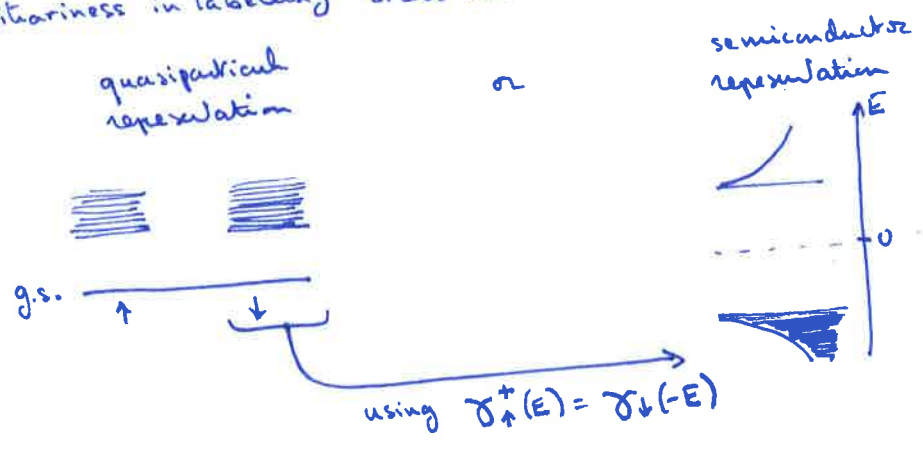 in labeling
quasiparticule
represulation
or
semiconductor
represulation
E
0
g.s. ↑ ↓
using γ↑⁺(E) = γ↓(-E)